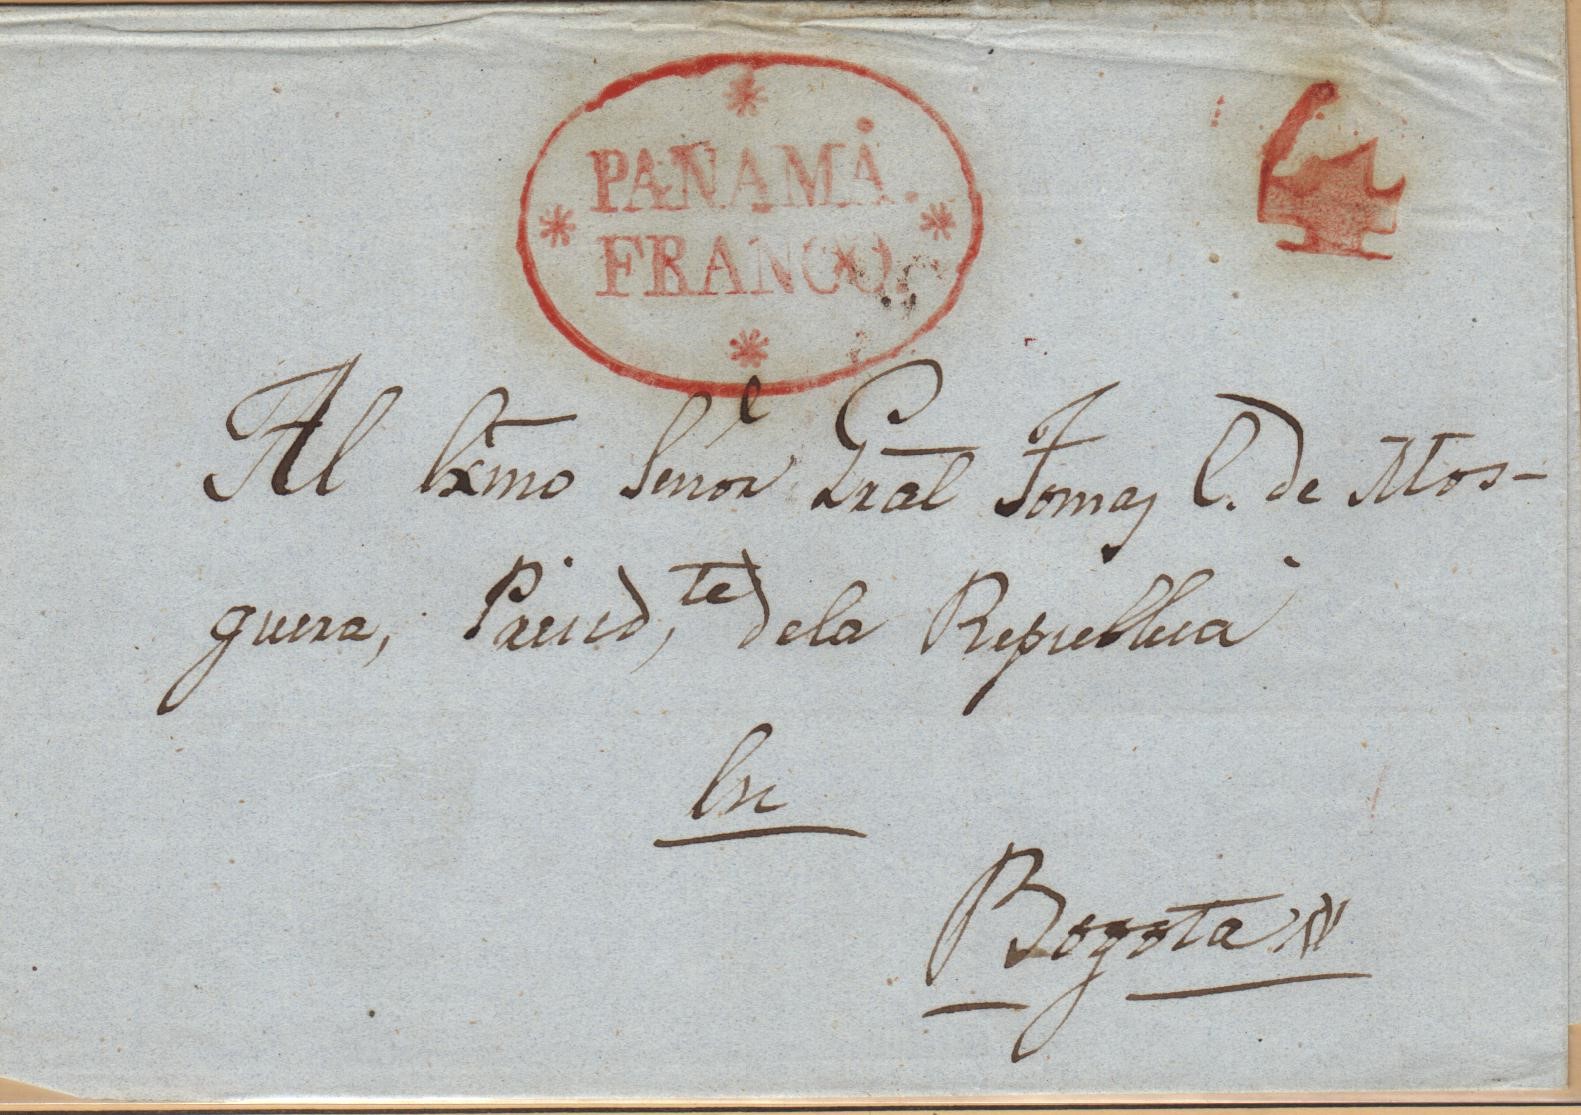 PANAMÁ.
FRANCO.
4
Al Exmo Señor Gral Tomas C. de Mos-
quera, Presid,te de la Republica
En
Bogota